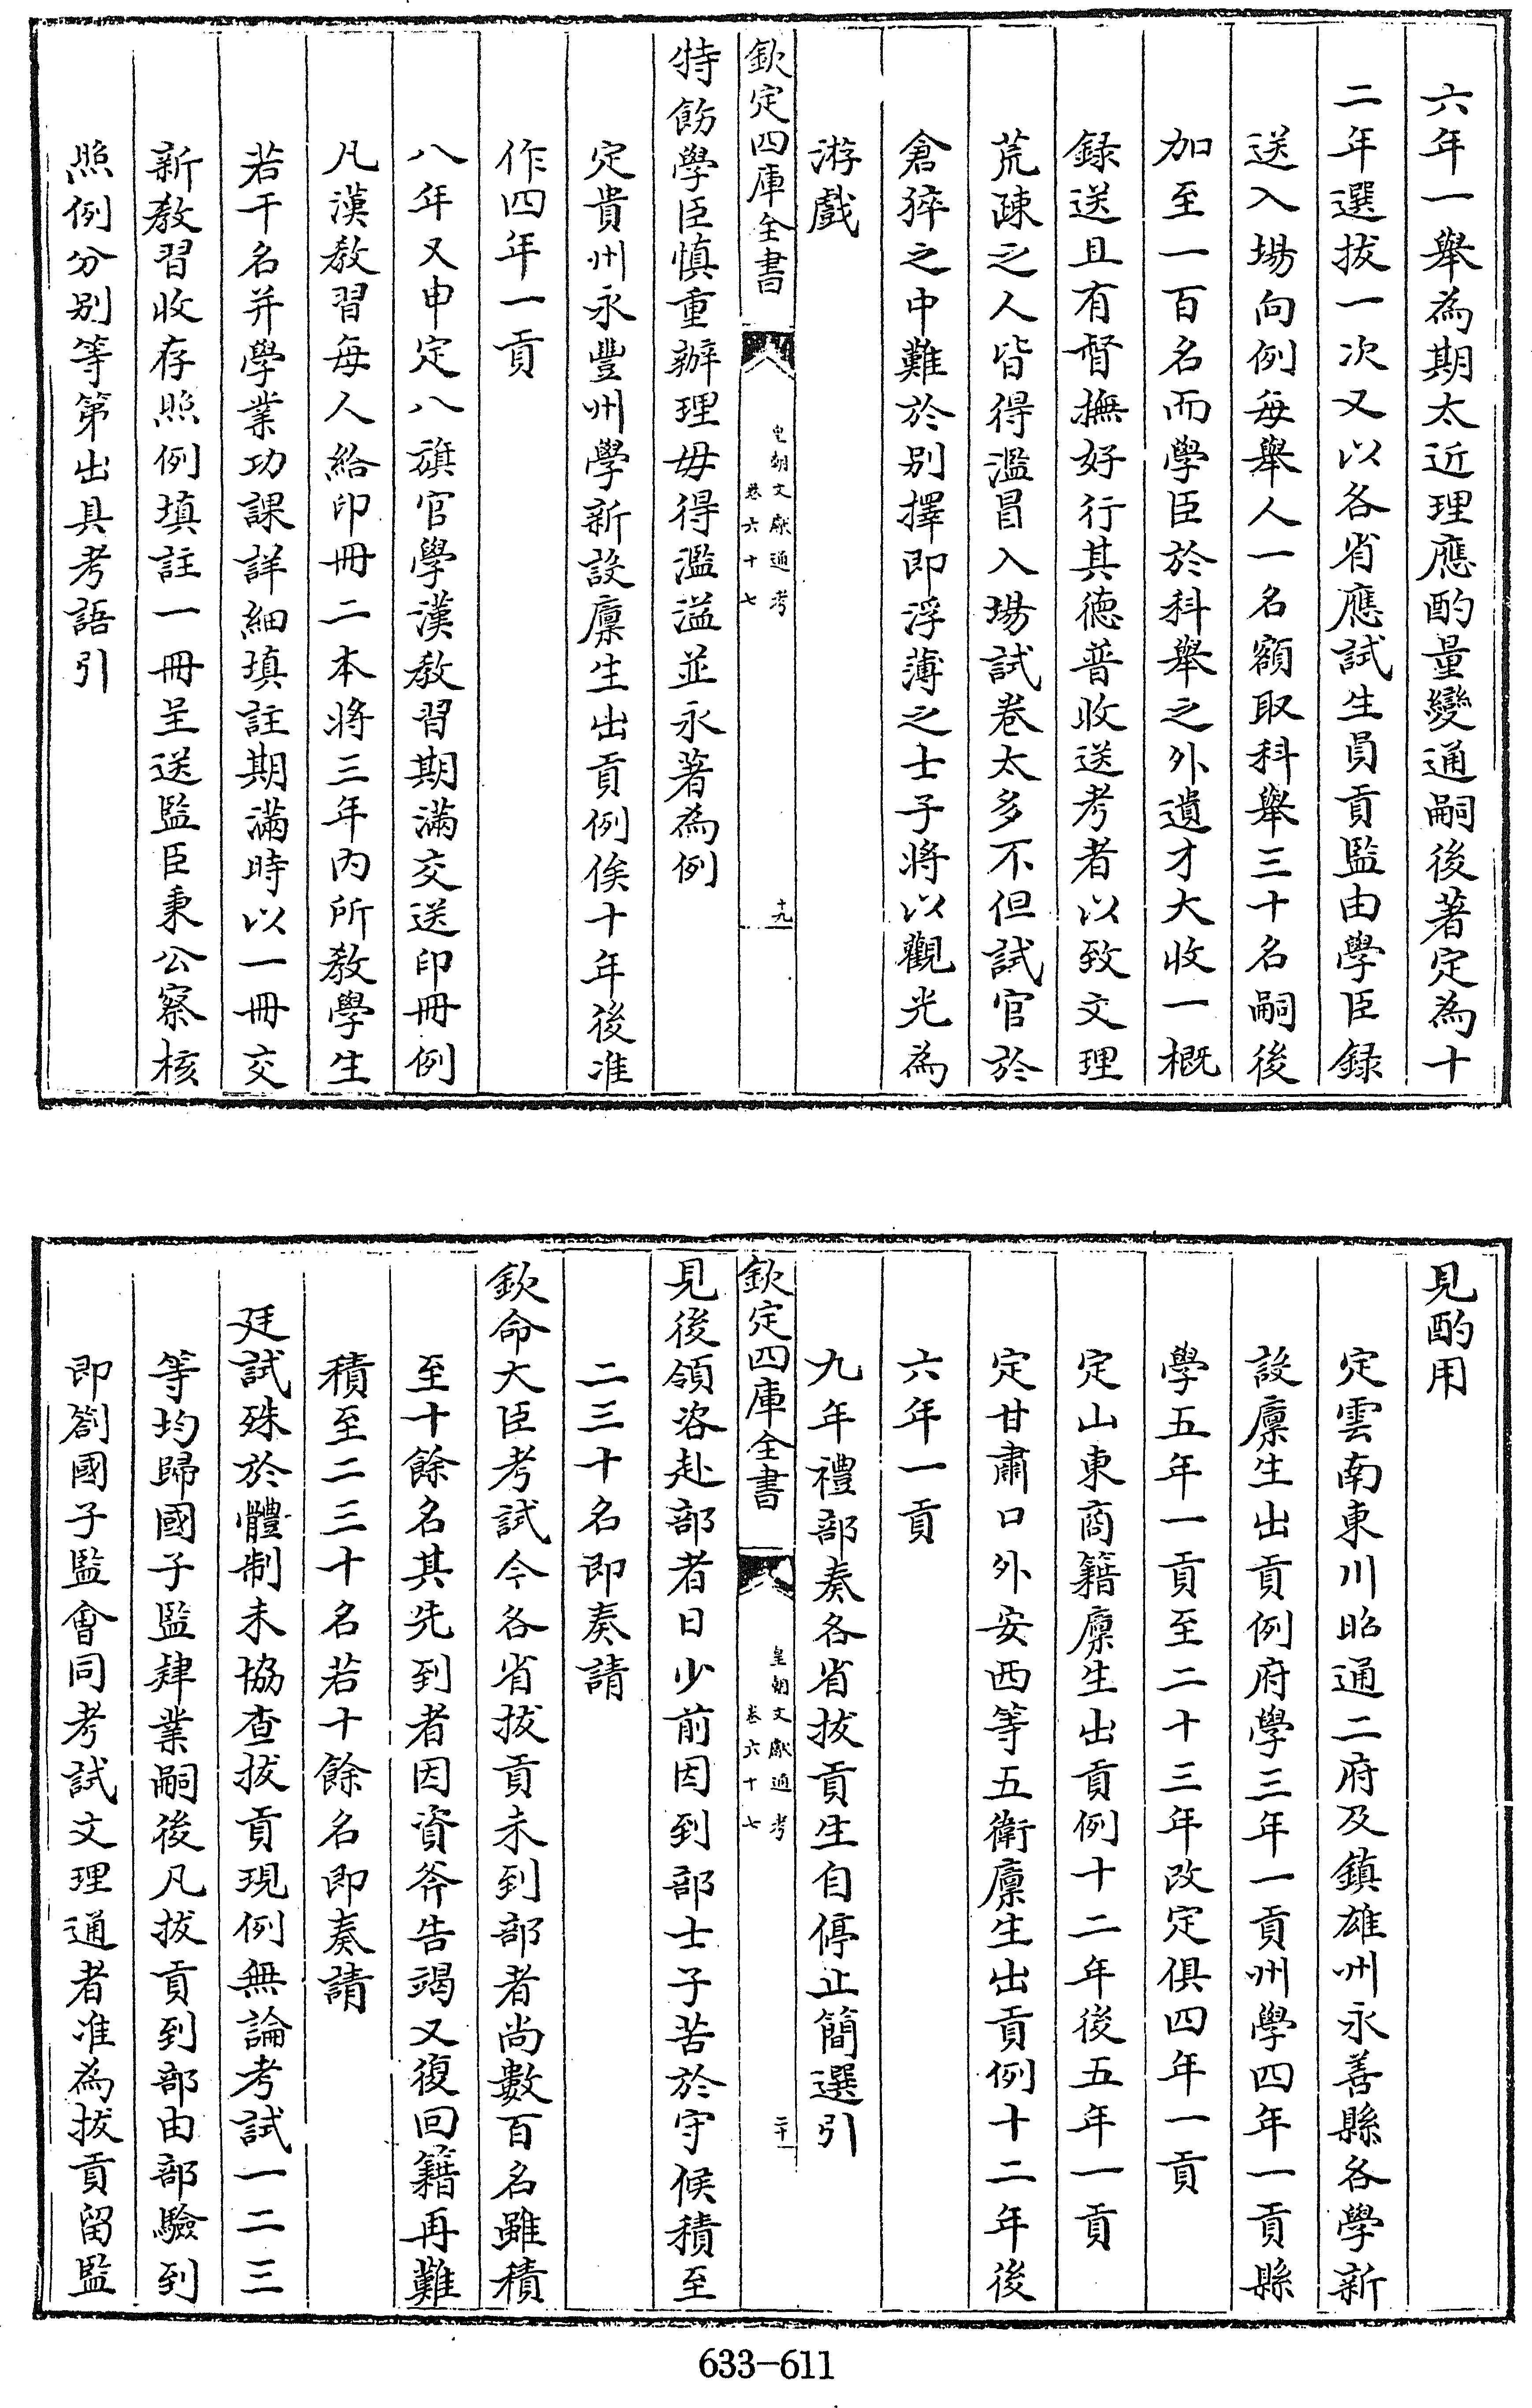 六年一舉為期太近理應酌量變通嗣後著定為十
二年選拔一次又以各省應試生員貢監由學臣録
送入場向例每舉人一名額取科舉三十名嗣後
加至一百名而學臣於科舉之外遺才大收一概
録送且有督撫好行其徳普收送考者以致文理
荒疎之人皆得濫冒入場試卷太多不但試官於
倉猝之中難於别擇即浮薄之士子將以觀光為
游戲
欽定四庫全書
皇朝文獻通考
卷六十七
十九
特飭學臣慎重辦理毋得濫溢並永著為例
定貴州永豐州學新設廪生出貢例俟十年後准
作四年一貢
八年又申定八旗官學漢教習期滿交送印冊例
凡漢教習每人給印冊二本將三年内所教學生
若干名并學業功課詳細填註期滿時以一冊交
新教習收存照例填註一冊呈送監臣秉公察核
照例分别等第出具考語引
見酌用
定雲南東川昭通二府及鎮雄州永善縣各學新
設廪生出貢例府學三年一貢州學四年一貢縣
學五年一貢至二十三年改定俱四年一貢
定山東商籍廪生出貢例十二年後五年一貢
定甘肅口外安西等五衛廪生出貢例十二年後
六年一貢
九年禮部奏各省拔貢生自停止簡選引
欽定四庫全書
皇朝文獻通考
卷六十七
二十
見後領咨赴部者日少前因到部士子苦於守候積至
二三十名即奏請
欽命大臣考試今各省拔貢未到部者尚數百名雖積
至十餘名其先到者因資斧告竭又復回籍再難
積至二三十名若十餘名即奏請
廷試殊於體制未協查拔貢現例無論考試一二三
等均歸國子監肄業嗣後凡拔貢到部由部驗到
即劄國子監會同考試文理通者准為拔貢留監
633-611